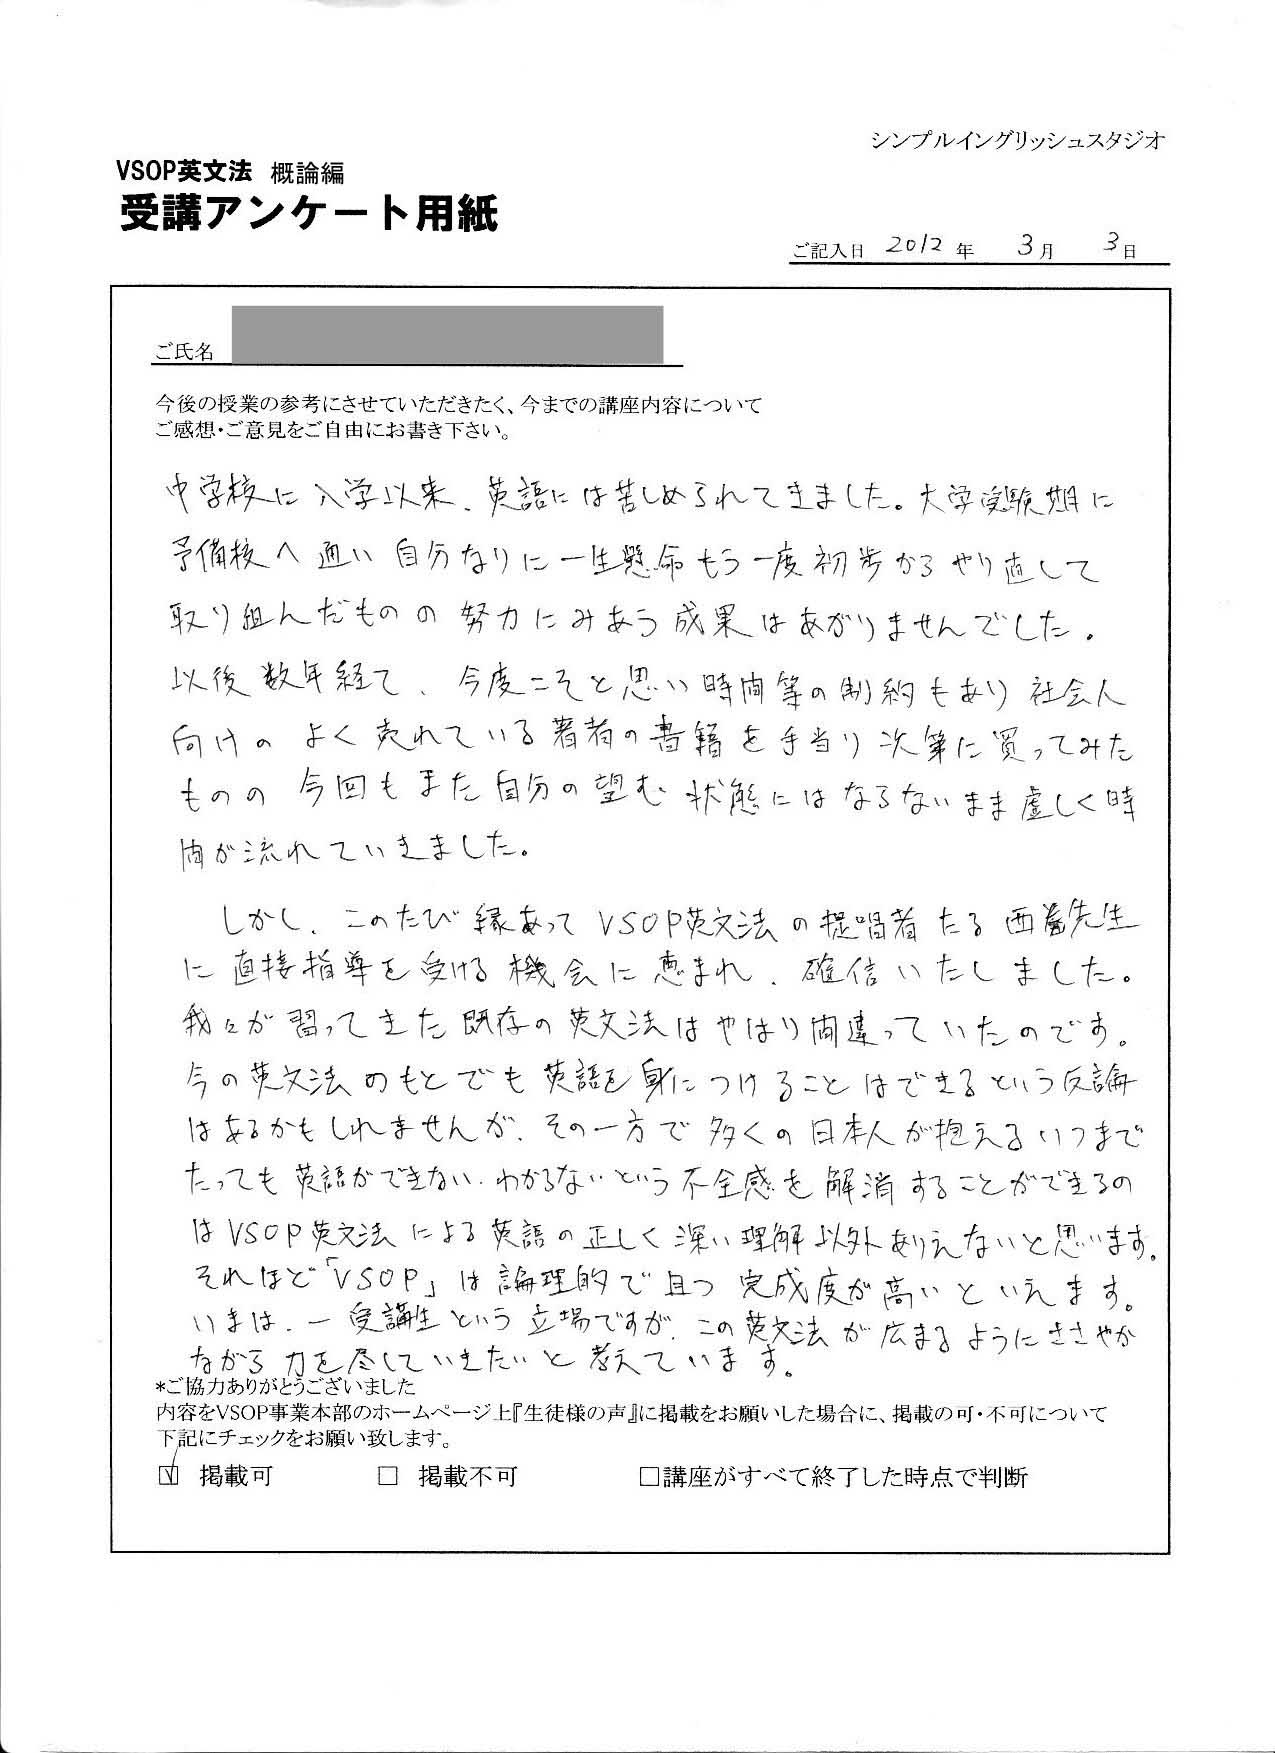 シンプルイングリッシュスタジオ
VSOP英文法 概論編
受講アンケート用紙
ご記入日 2012 年 3月 3日
ご氏名
今後の授業の参考にさせていただきたく、今までの講座内容について
ご感想・ご意見をご自由にお書き下さい。
中学校に入学以来、英語には苦しめられてきました。大学受験期に
予備校へ通い自分なりに一生懸命もう一度初歩からやり直して
取り組んだものの努力にみあう成果はあがりませんでした。
以後数年経て、今度こそと思い時間等の制約もあり社会人
向けのよく売れている著者の書籍を手当り次第に買ってみた
ものの今回もまた自分の望む状態にはならないまま虚しく時
間が流れていきました。
しかし、このたび縁あってVSOP英文法の提唱者たる西巻先生
に直接指導を受ける機会に恵まれ、確信いたしました。
我々が習ってきた既存の英文法はやはり間違っていたのです。
今の英文法のもとでも英語を身につけることはできるという反論
はあるかもしれませんが、その一方で多くの日本人が抱えるいつまで
たっても英語ができない、わからないという不全感を解消することができるの
はVSOP英文法による英語の正しく深い理解以外ありえないと思います。
それほど「VSOP」は論理的で且つ完成度が高いといえます。
いまは、一受講生という立場ですが、この英文法が広まるようにささやか
ながら力を尽していきたいと考えています。
*ご協力ありがとうございました
内容をVSOP事業本部のホームページ上『生徒様の声』に掲載をお願いした場合に、掲載の可・不可について
下記にチェックをお願い致します。
☑ 掲載可 □ 掲載不可 □講座がすべて終了した時点で判断